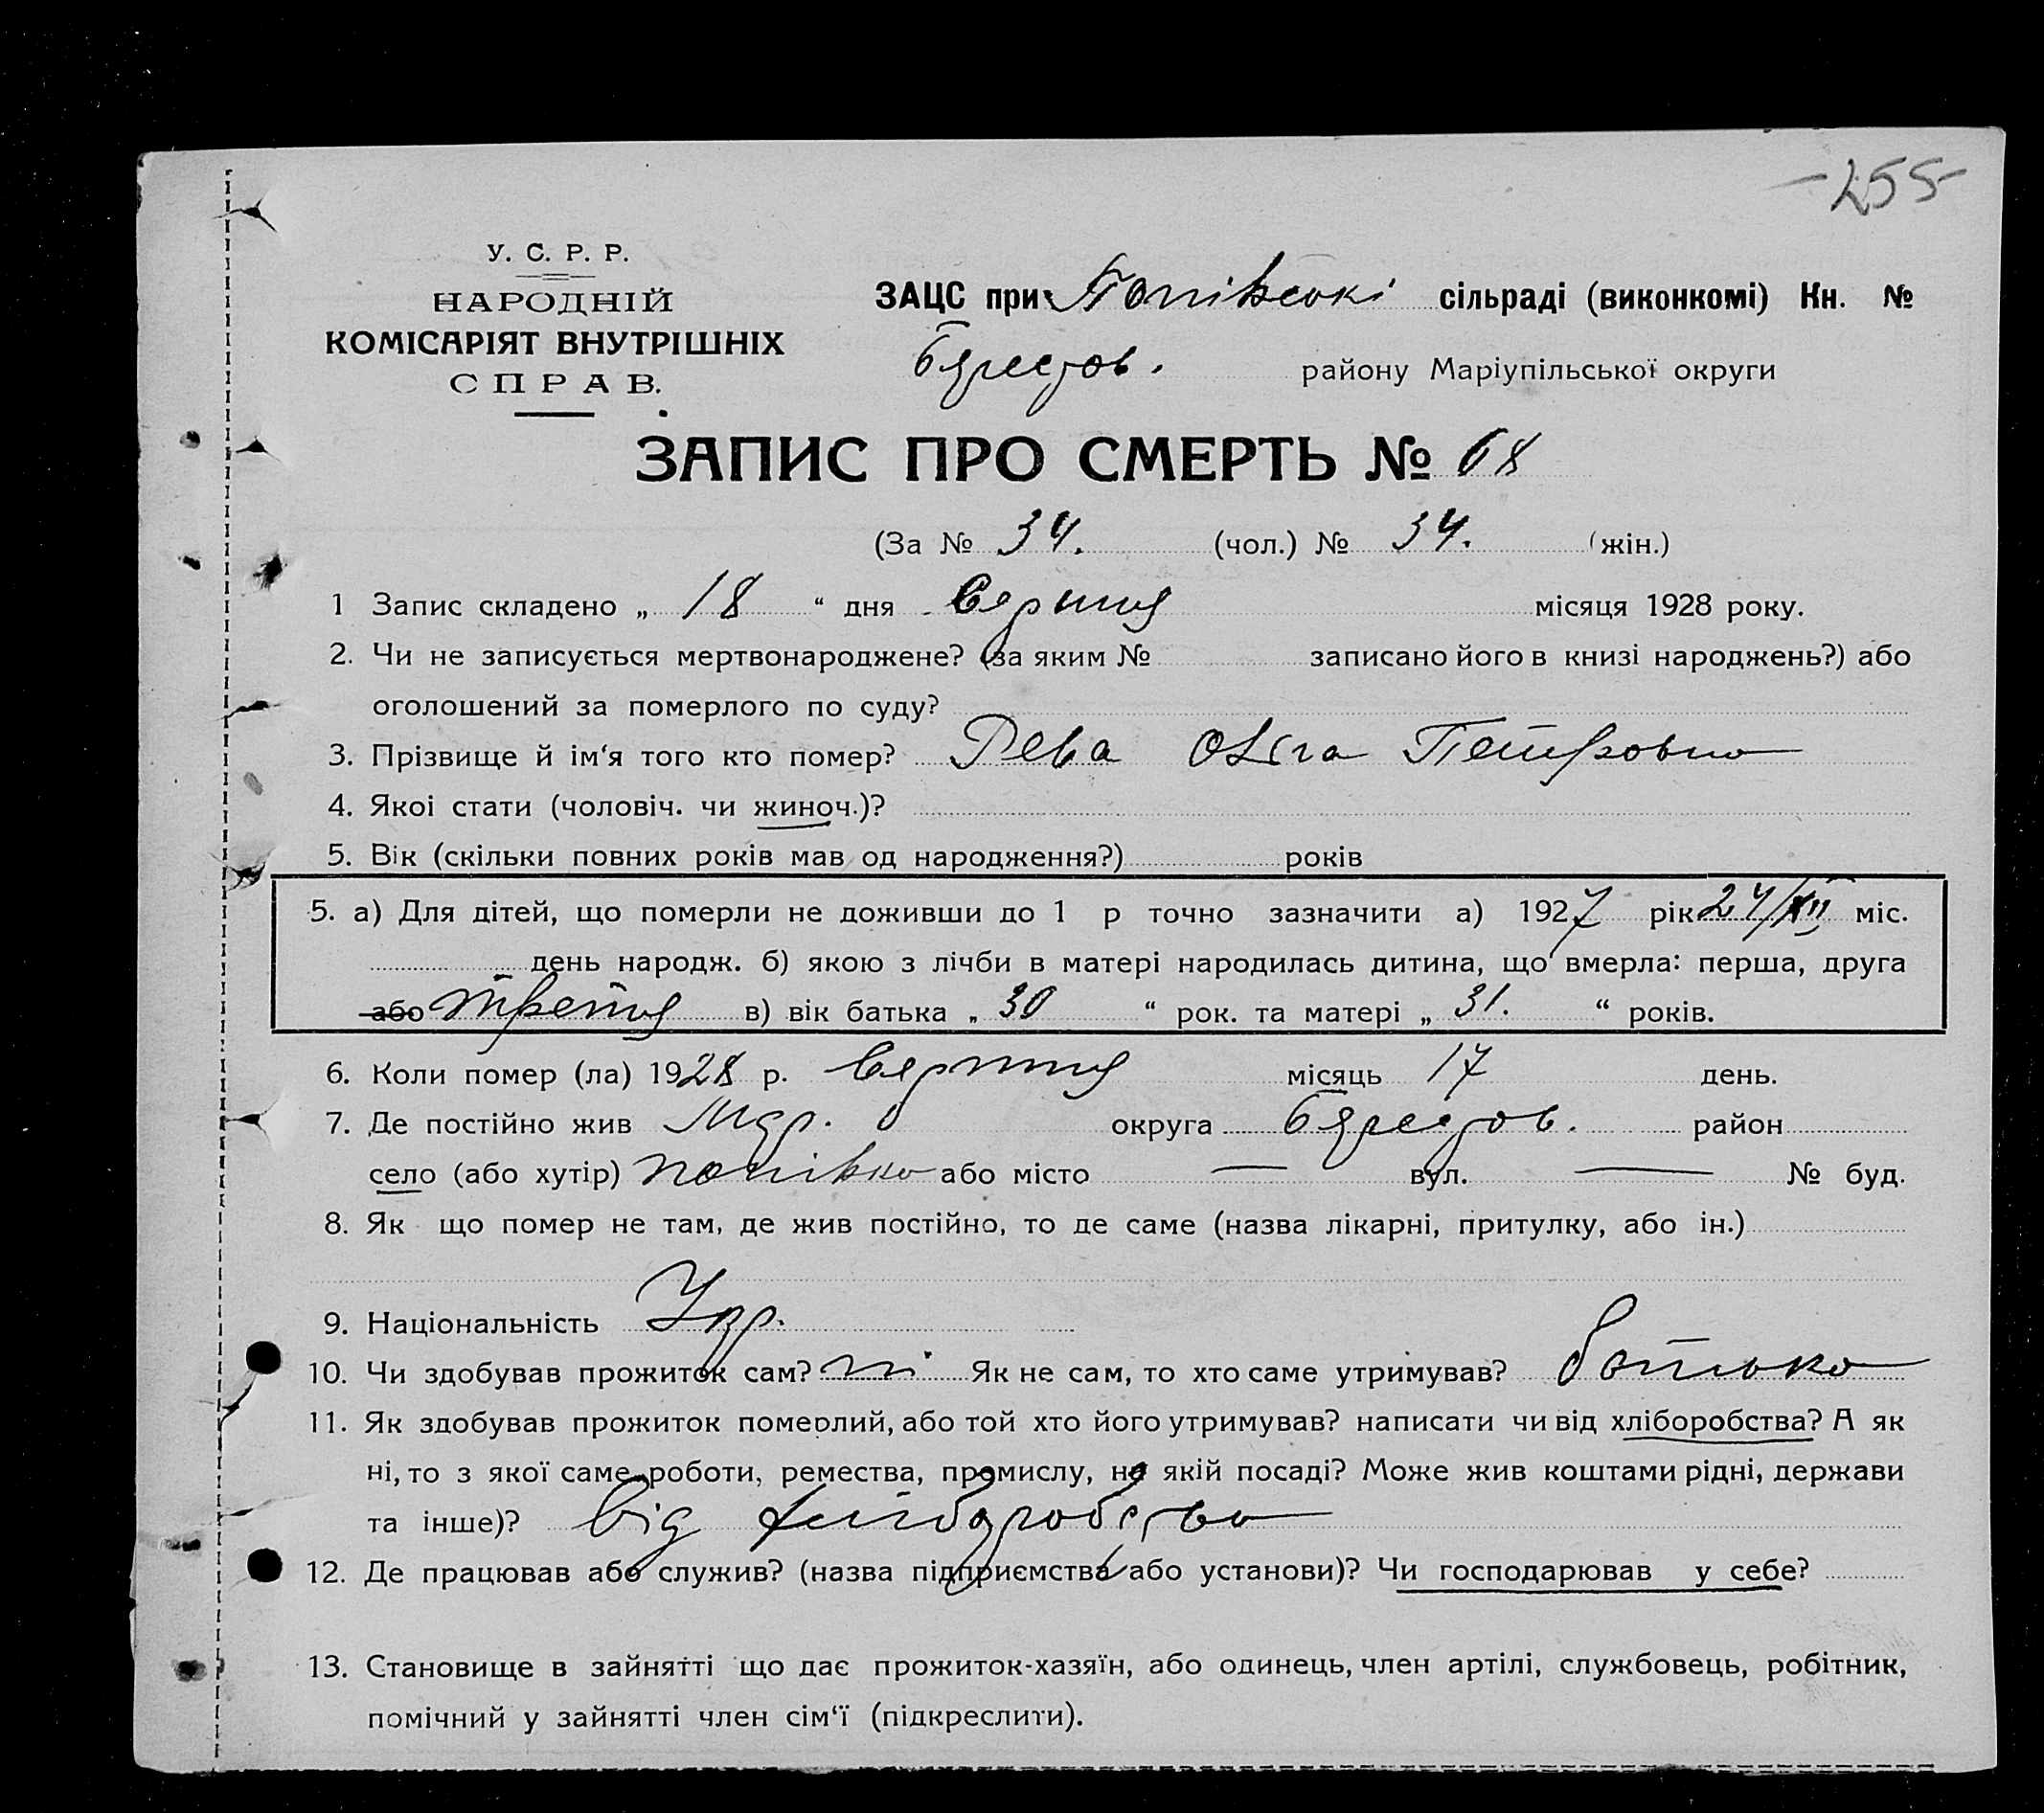 -255-
У. С. Р. Р.
НАРОДНІЙ
КОМІСАРІЯТ ВНУТРІШНІХ
СПРАВ.
ЗАЦС при Попівські сільраді (виконкомі) Кн. №
Бярестов. району Маріупільської округи
ЗАПИС ПРО СМЕРТЬ № 68
(За № 34. (чол.) № 34. (жін.)
1 Запис складено „ 18 “ дня Серпня місяця 1928 року.
2. Чи не записується мертвонароджене? (за яким № записано його в книзі народжень?) або
оголошений за померлого по суду?
3. Прізвище й ім‘я того кто помер? Рева Олга Петровна
4. Якоі стати (чоловіч. чи жиноч.)?
5. Вік (скільки повних років мав од народження?) років
5. а) Для дітей, що померли не доживши до 1 р точно зазначити а) 1927 рік 24/XII міс.
день народж. б) якою з лічби в матері народилась дитина, що вмерла: перша, друга
або третя в) вік батька „ 30 “ рок. та матері „ 31. “ років.
6. Коли помер (ла) 1928 р. Серпня місяць 17 день.
7. Де постійно жив Мар. округа Бярестов. район
село (або хутір) Попівка або місто — вул. — № буд.
8. Як що помер не там, де жив постійно, то де саме (назва лікарні, притулку, або ін.)
9. Національність Укр.
10. Чи здобував прожиток сам? ні Як не сам, то хто саме утримував? батько
11. Як здобував прожиток померлий, або той хто його утримував? написати чи від хліборобства? А як
ні, то з якої саме роботи, ремества, промислу, на якій посаді? Може жив коштами рідні, держави
та інше)? від хліборобства
12. Де працював або служив? (назва підприємства або установи)? Чи господарював у себе?
13. Становище в зайнятті що дає прожиток-хазяїн, або одинець, член артілі, службовець, робітник,
помічний у зайнятті член сім‘ї (підкреслити).